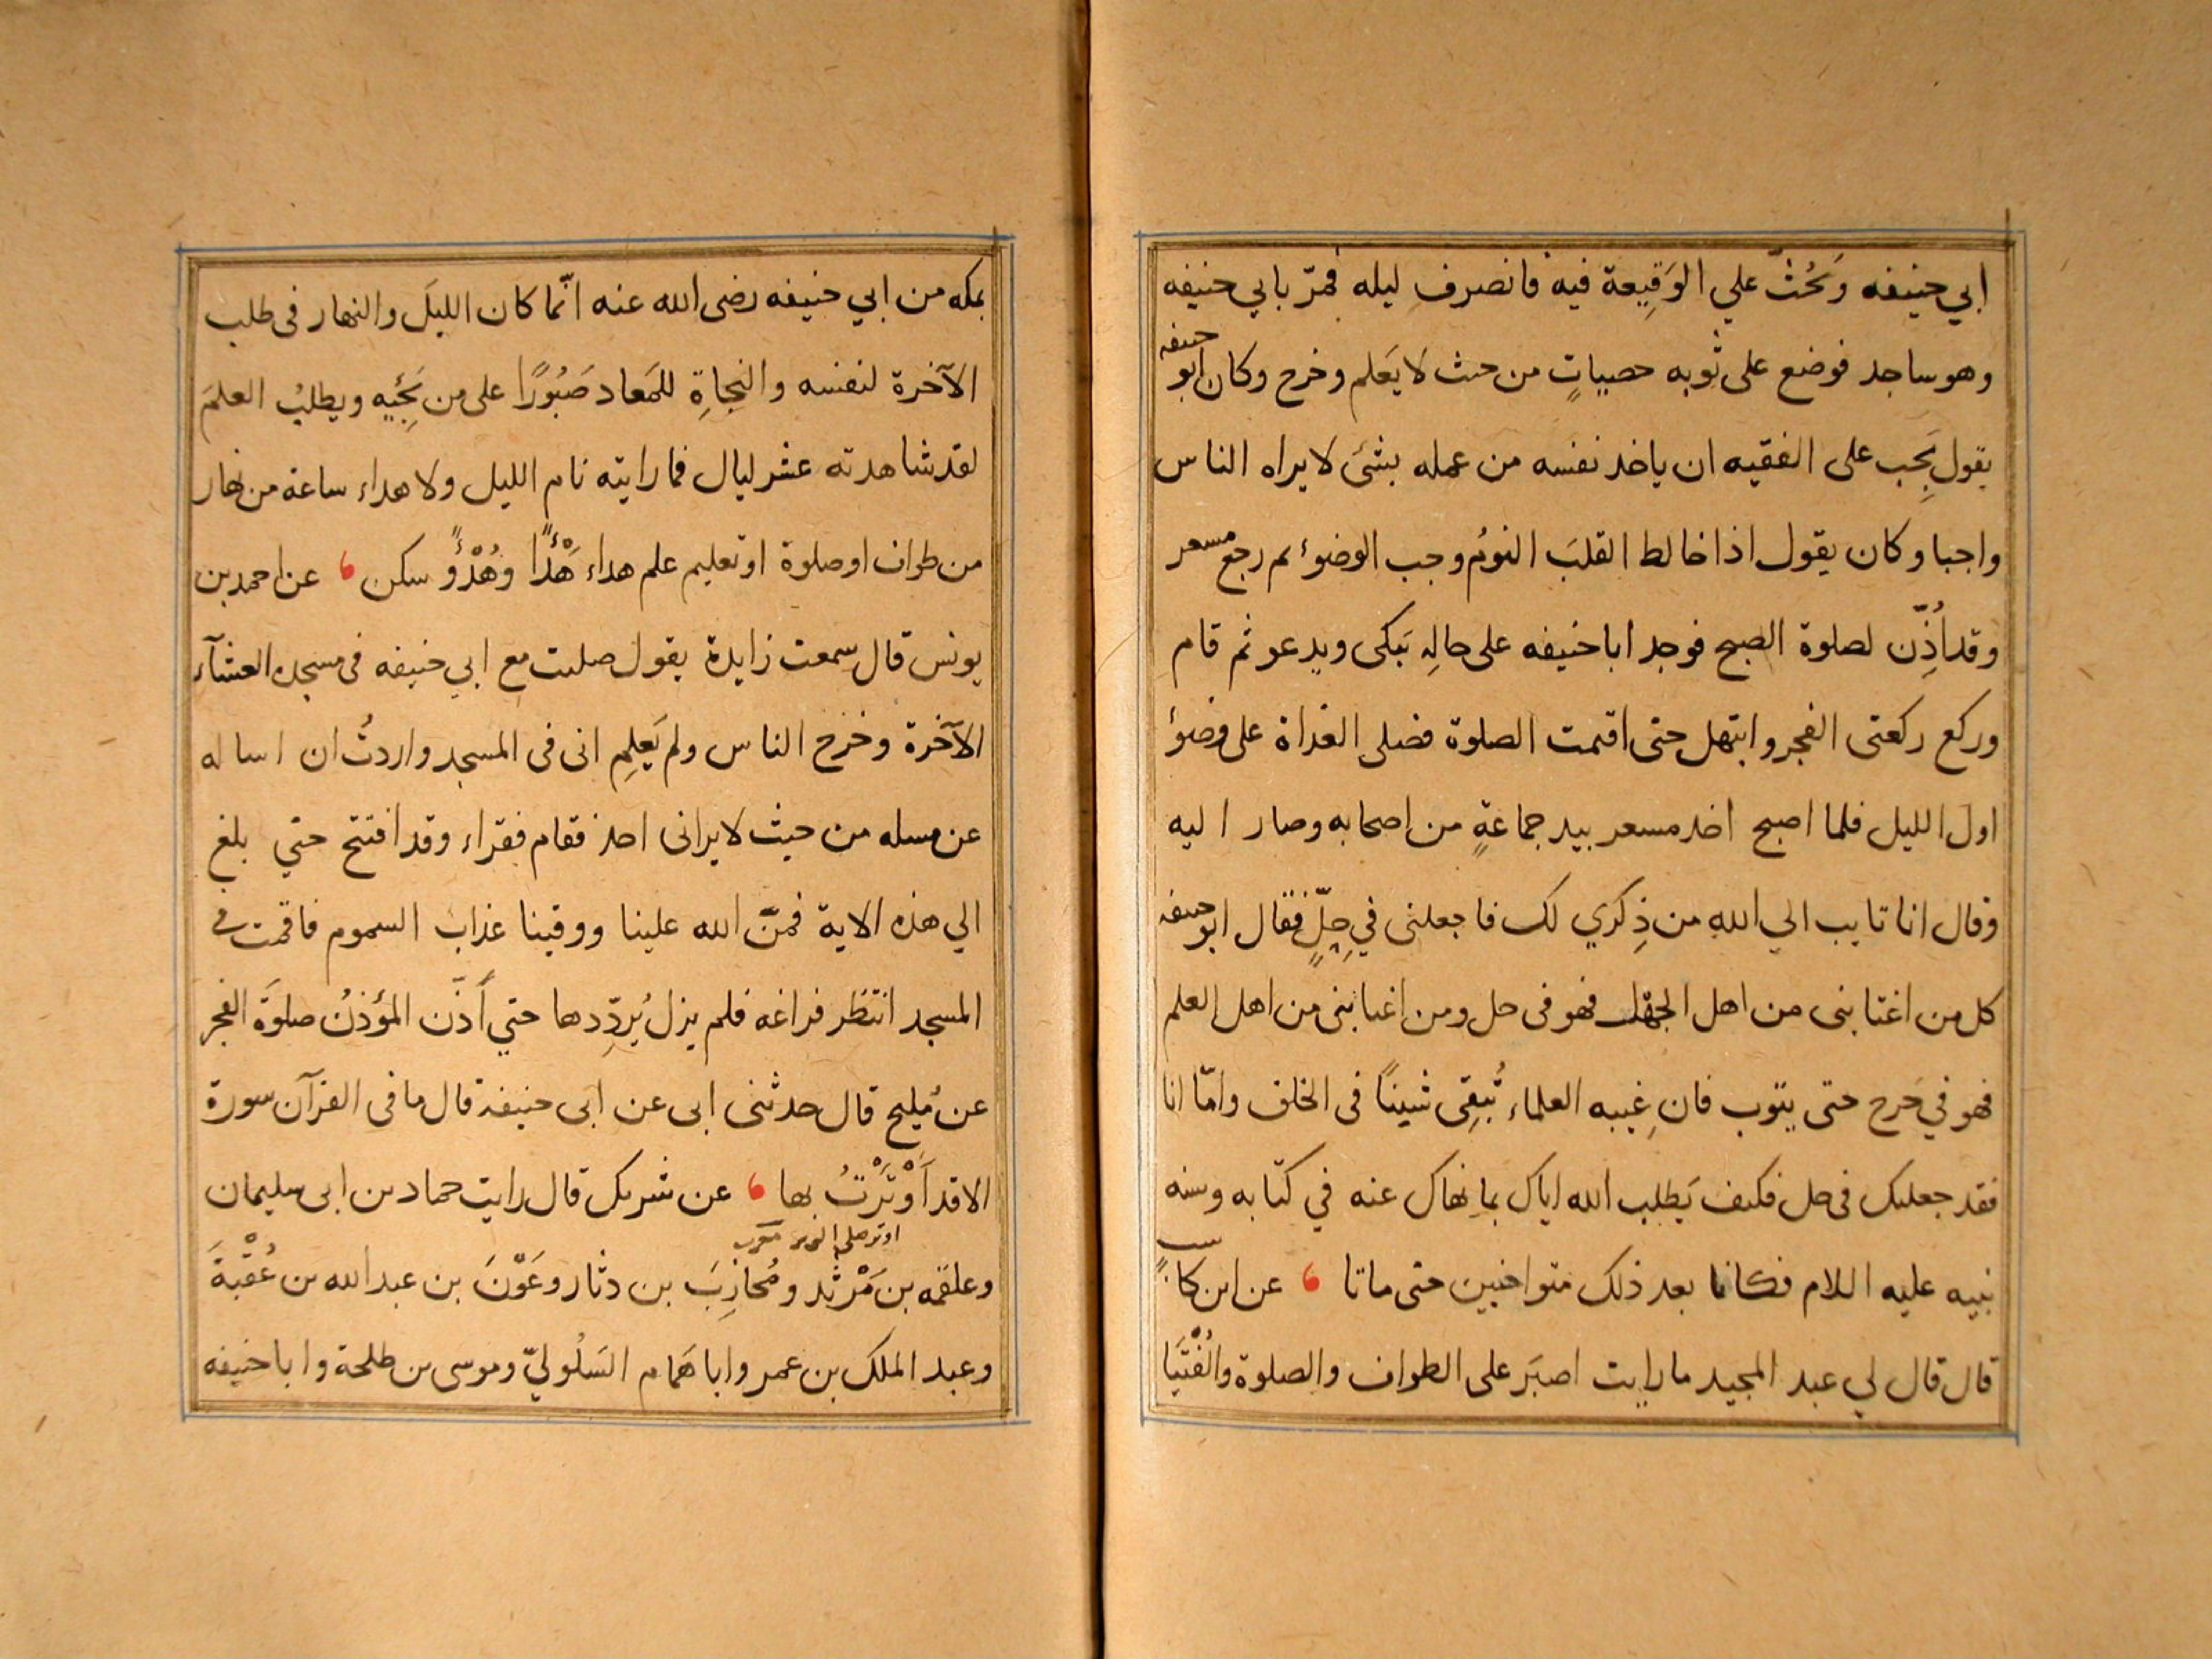 ابي حنيفه وَيَحُثّ علي الوَقِيعة فيه فانصرف ليله فمرّ بابي حنيفه
وهو ساجد فوضع على ثوبه حصيباتٍ من حيث لا يَعلم وخرج وكان ابو حنيفه
يقول يَجِب على الفقيه ان ياخذ نفسه من عمله بشئ لا يراه الناس
واجبا وكان يقول اذا خالط القلبَ النومُ وجب الوضوء ثم رجع مسعر
وقد اُذِّن لصلوة الصبح فوجد ابا حنيفه على حالِه يَبكى ويدعو ثم قام
وركع ركعتى الفجر وابتهل حتى اقيمت الصلوة فصلى الغداة على وضوء
اول الليل فلما اصبح اخذ مسعر بيد جماعةٍ من اصحابه وصار اليه
وقال انا تايب الي الله من ذِكري لك فاجعلنى في حِلٍّ فقال ابو حنيفه
كل من اغتابنى من اهل الجهل فهو فى حل ومن اغتابنى من اهل العلم
فهو في حَرج حتى يتوب فان غِيبه العلماء تُبقِى شيناً فى الخلف وامّا انا
فقد جعلتك فى حل فكيف يَطلب الله اياك بما نهاك عنه في كتابه وسنه
نبيه عليه اللام فكانا بعد ذلك متواخيين حتى ماتا عن ابن كاسب
قال قال لي عبد المجيد ما رايت اصبَر على الطواف والصلوة والفُتْيَا
بمكه من ابي حنيفه رضى الله عنه انّما كان الليلَ والنهار فى طلب
الآخرة لنفسه والنجاةِ للمَعاد صَبُورًا على من يَجِيه ويطلبُ العلمَ
لقد شاهدته عشر ليال فما رايته نام الليل ولا هداء ساعة من نهار
من طواف او صلوة او تعليم علم هداء هَدْءًا وهُدْؤًا سكن عن احمد بن
يونس قال سمعت زايدة يقول صليت مع ابي حنيفه فى مسجده العشآء
الآخرة وخرج الناس ولم يَعلم انى فى المسجد واردتُ ان اساله
عن مسله من حيث لا يرانى احد فقام فقراء وقد افتتح حتي بلغ
الي هذه الاية فمنّ الله علينا ووقينا عذاب السموم فاقمت في
المسجد انتظر فراغه فلم يزل يُردِّدها حتي أَذّن المؤذنُ صلوةَ الفجر
عن مُليح قال حدثنى ابى عن ابى حنيفة قال ما فى القرآن سورة
الا قد اَوْتَرْتُ بها عن شريك قال رايت حماد بن ابى سليمان
اوتر صلى الوتر
وعلقمه بن مَرْثد ومُحاربَ بن دثار وعَوْنَ بن عبد الله بن عُقْبةَ
وعبد الملك بن عمر وابا هَمام السَلُوليّ وموسى بن طلحة وابا حنيفه